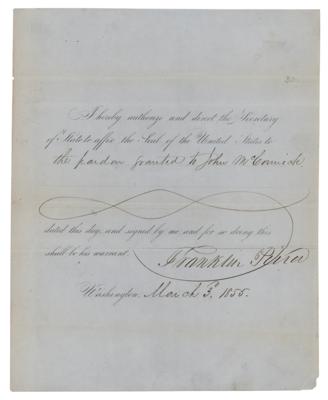 I hereby authorize and direct the Secretary
of State to affix the Seal of the United States to
the pardon granted to John McCormick
dated this day, and signed by me and for so doing this
shall be his warrant.
Franklin Pierce
Washington, March 3d 1855.